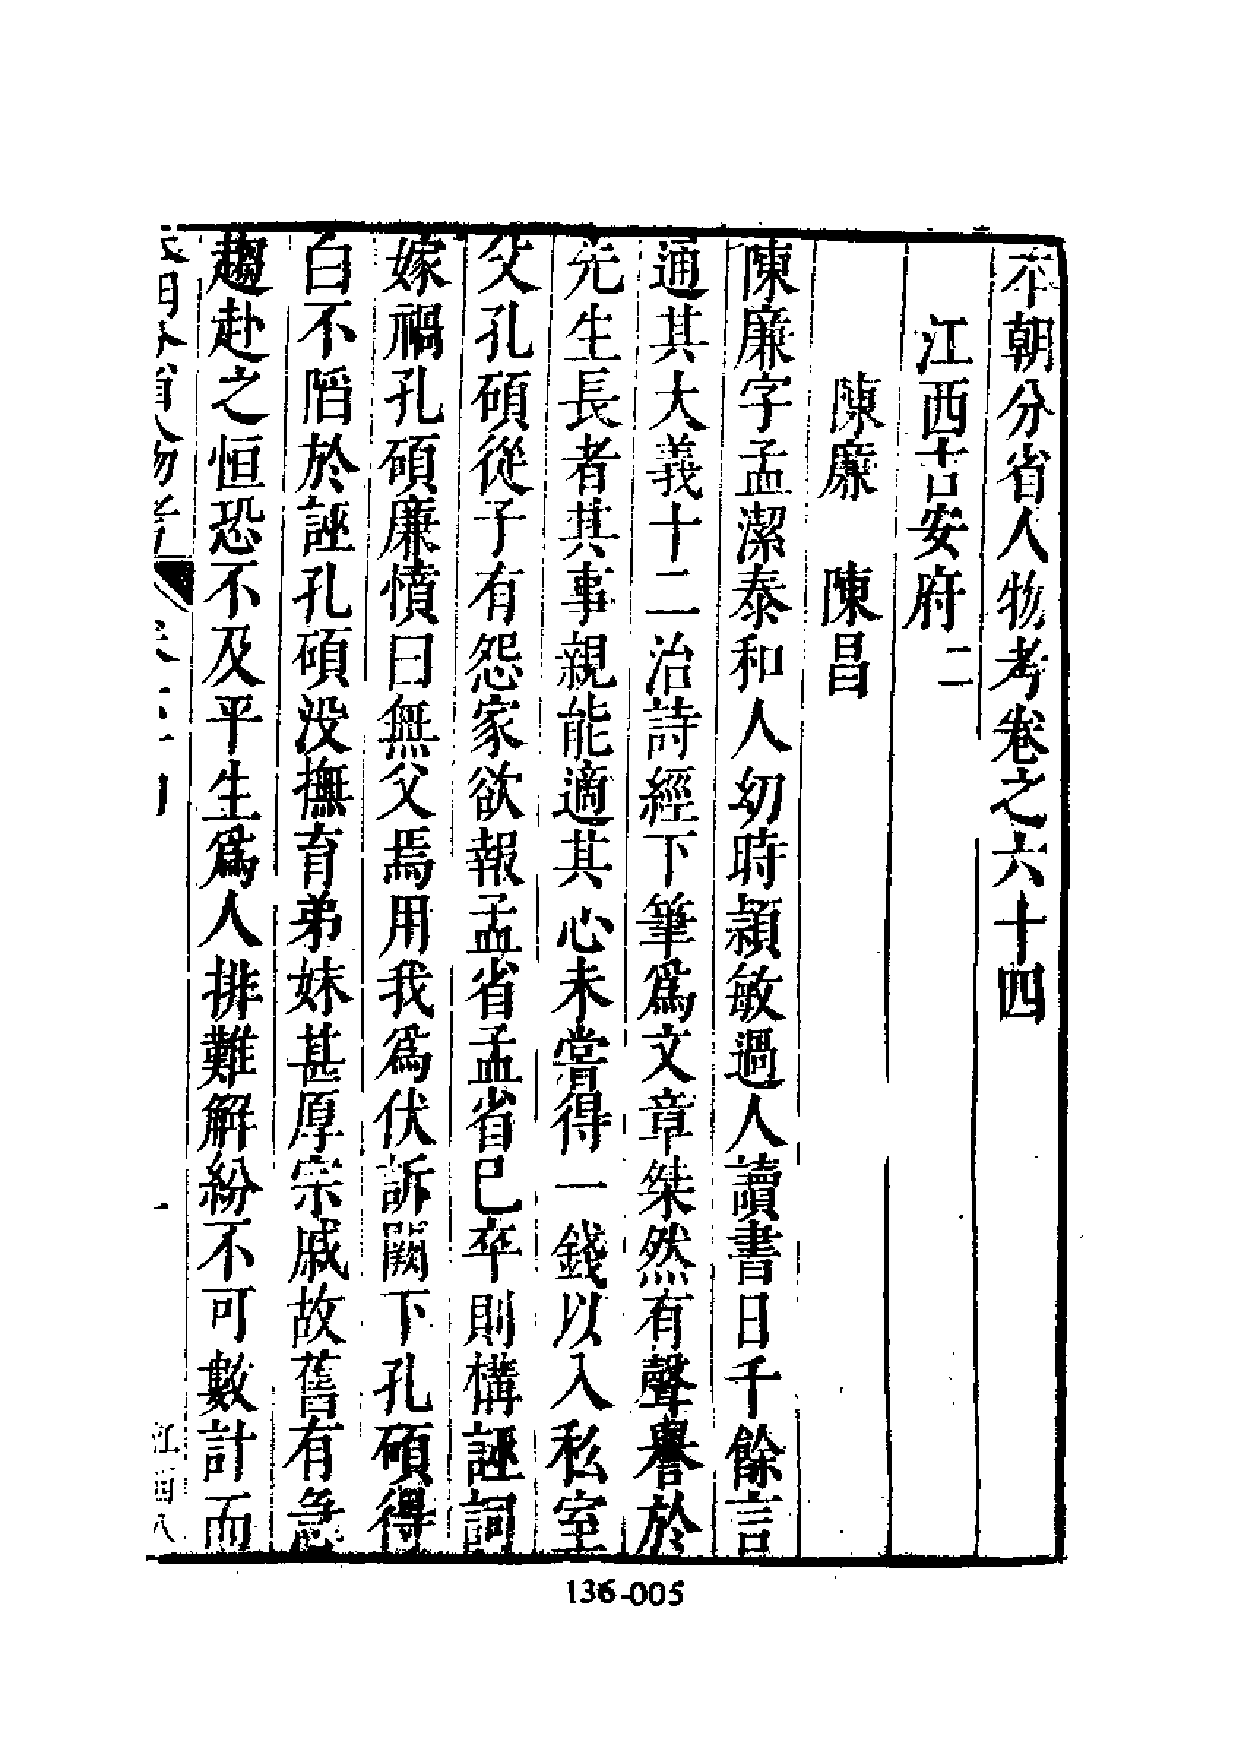 本朝分省人物考卷之六十四
江西吉安府二
陳廉　陳昌
陳廉字孟潔泰和人幼時頴敏過人讀書日千餘言
通其大義十二治詩經下筆爲文章桀然有聲譽於
先生長者其事親能適其心未嘗得一錢以入私室
父孔碩從子有怨家欲報孟省孟省巳卒則構誣詞
嫁禍孔碩廉憤曰無父焉用我爲伏訴闕下孔碩得
白不陷於誣孔碩没撫育弟妹甚厚宗戚故舊有急
趨赴之恒恐不及平生爲人排難解紛不可數計而
136-005